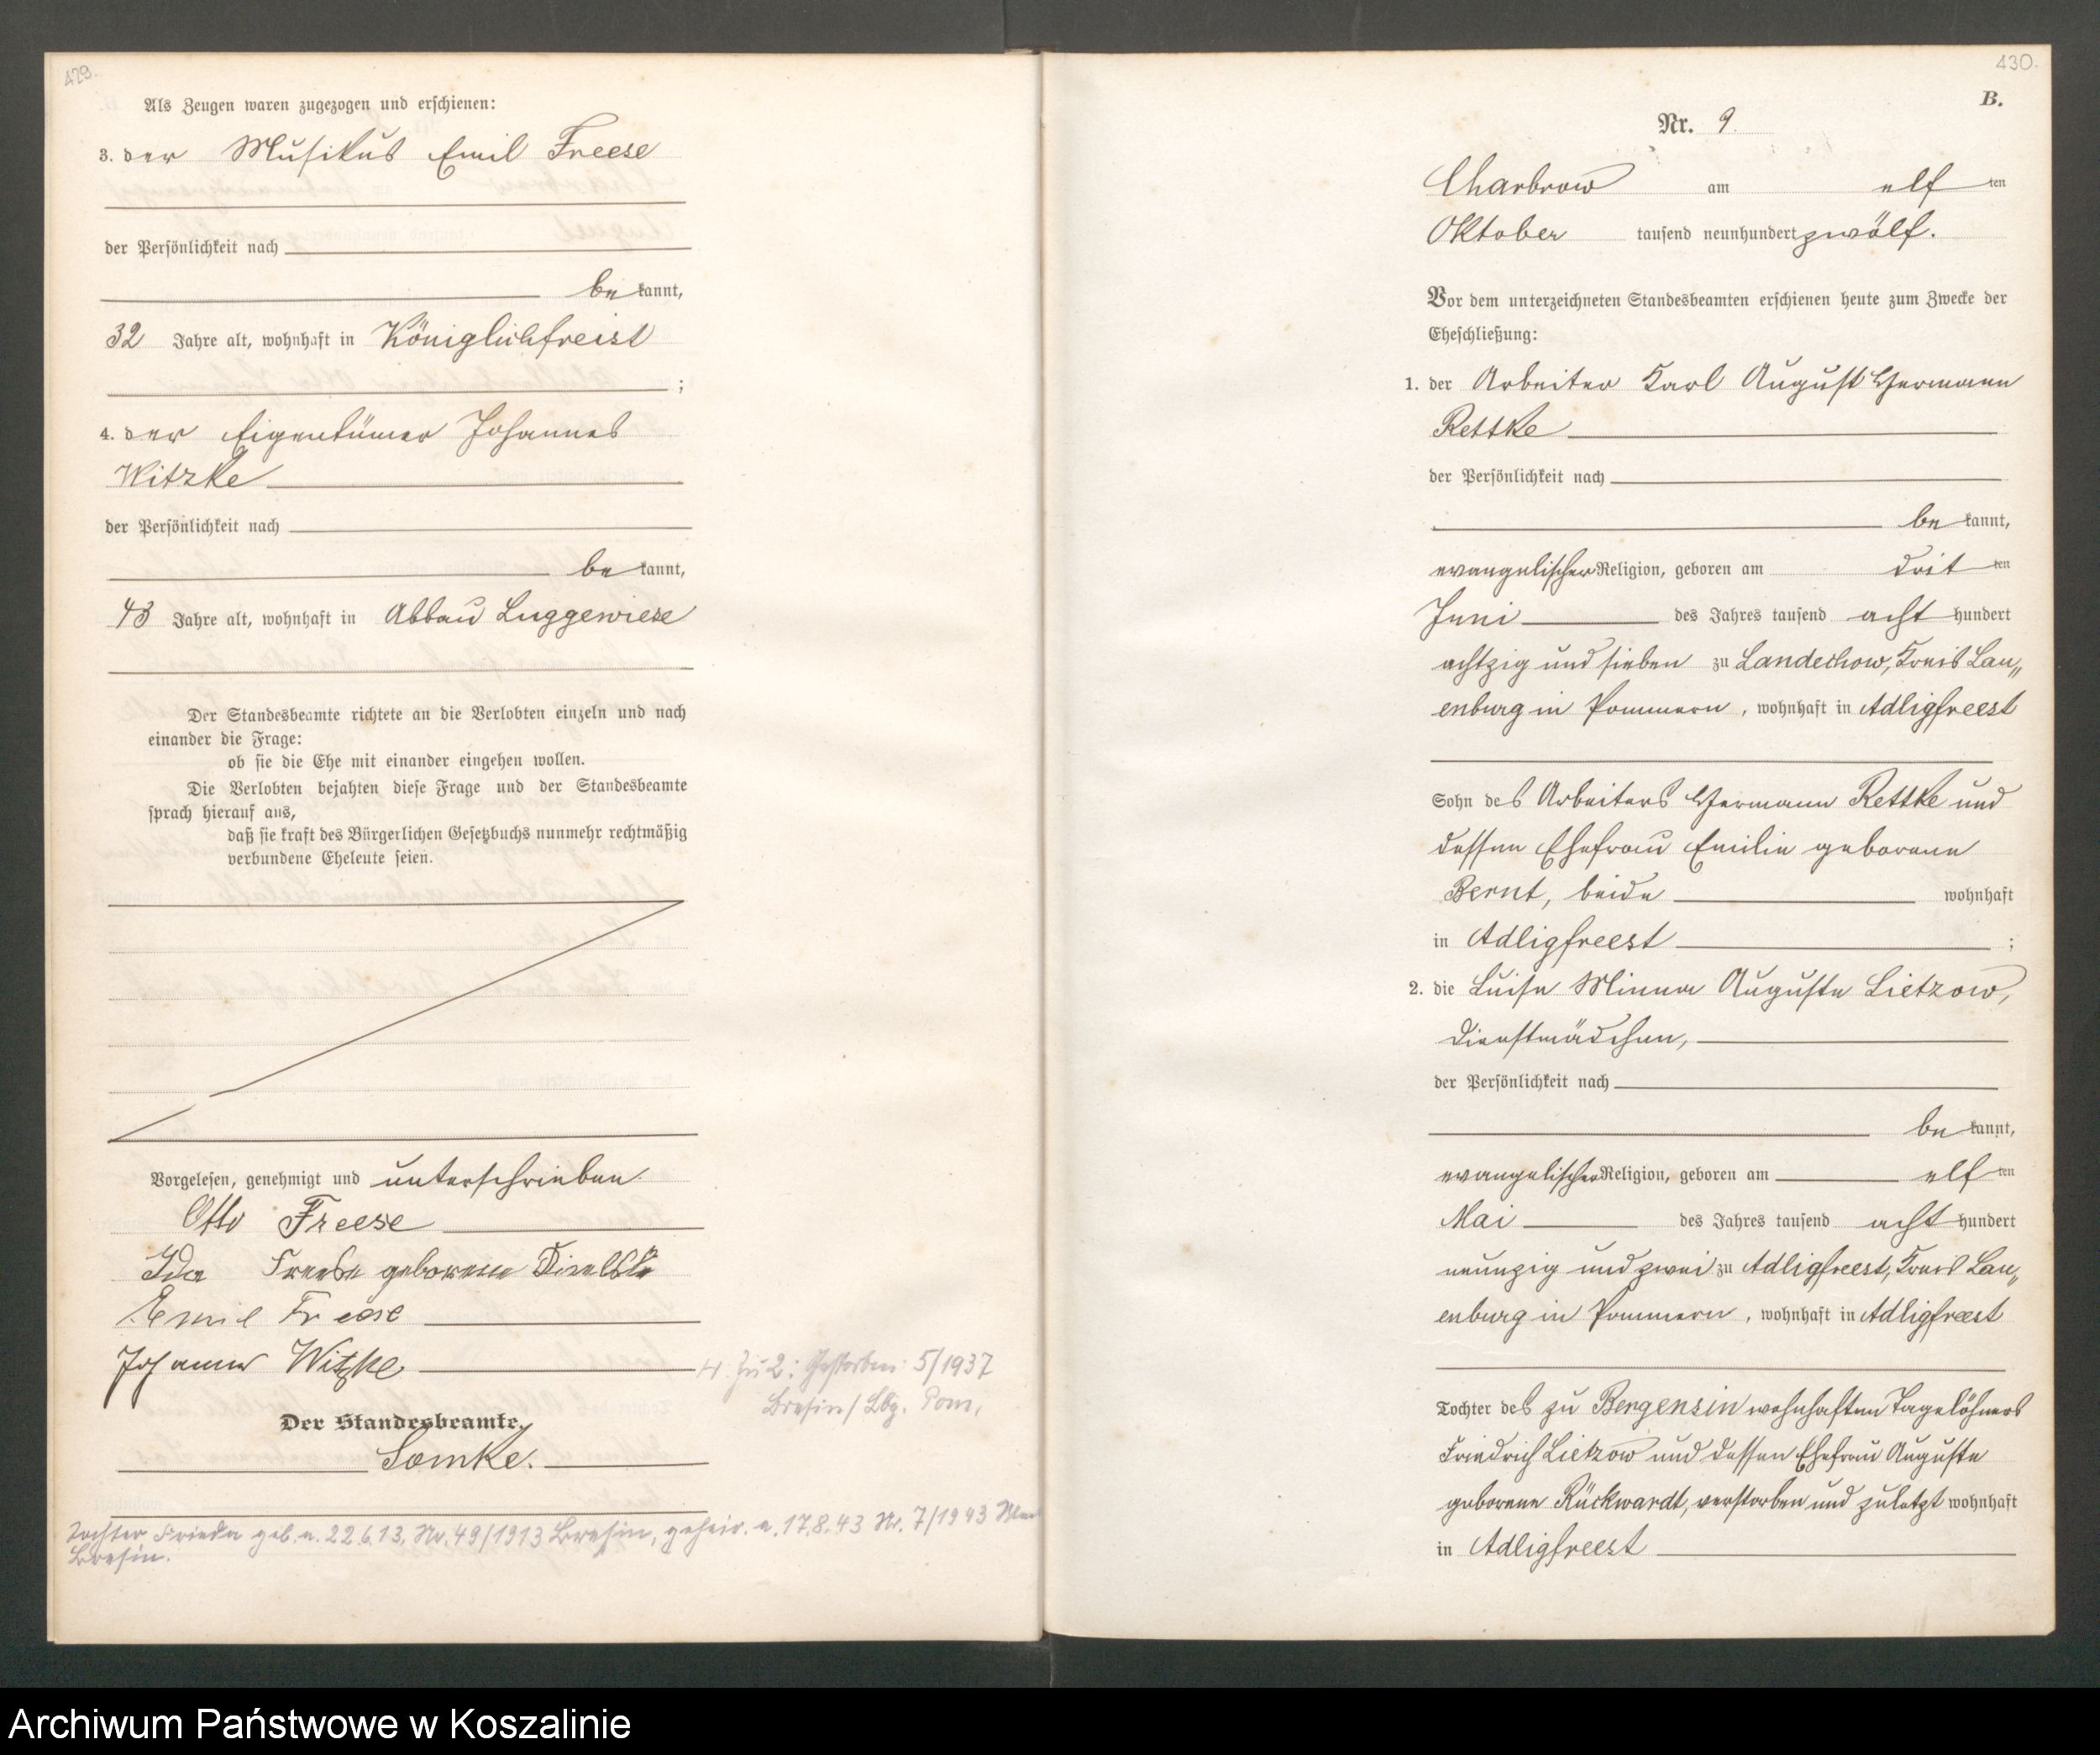 429.
Als Zeugen waren zugezogen und erschienen:
3. der Musikus Emil Freese
der Persönlichkeit nach
bekannt,
32 Jahre alt, wohnhaft in Königlichfreist
;
4. der Eigentümer Johannes
Witzke
der Persönlichkeit nach
bekannt,
43 Jahre alt, wohnhaft in Abbau Luggewiese
Der Standesbeamte richtete an die Verlobten einzeln und nach
einander die Frage:
ob sie die Ehe mit einander eingehen wollen.
Die Verlobten bejahten diese Frage und der Standesbeamte
sprach hierauf aus,
daß sie kraft des Bürgerlichen Gesetzbuchs nunmehr rechtmäßig
verbundene Eheleute seien.
Vorgelesen, genehmigt und unterschrieben.
Otto Freese
Ida Freese geborene
Emil Freese
Johannes Witzke
4. Zu 2: Gestorben: 5/1937
Bresin/Lbg. Pom.
Der Standesbeamte,
Somke.
Tochter Frieda geb. a. 22.6.13, Nr. 49/1913 Bresin, geheir. a. 17.8.43 Nr. 7/1943
Bresin.
430.
B.
Nr. 9.
Charbrow am elften
Oktober tausend neunhundert zwölf.
Vor dem unterzeichneten Standesbeamten erschienen heute zum Zwecke der
Eheschließung:
1. der Arbeiter Karl August Hermann
Rettke
der Persönlichkeit nach
bekannt,
evangelischer Religion, geboren am dritten
Juni des Jahres tausend achthundert
achtzig und sieben zu Landechow, Kreis Lau„
enburg in Pommern, wohnhaft in Adligfreest
Sohn des Arbeiters Hermann Rettke und
dessen Ehefrau Emilie geborene
Bernt, beide wohnhaft
in Adligfreest ;
2. die Luise Minna Auguste Lietzow,
Dienstmädchen,
der Persönlichkeit nach
bekannt,
evangelischer Religion, geboren am elften
Mai des Jahres tausend achthundert
neunzig und zwei zu Adligfreest, Kreis Lau„
enburg in Pommern, wohnhaft in Adligfreest
Tochter des zu Bergensin wohnhaften Tagelöhners
Friedrich Lietzow und dessen Ehefrau Auguste
geborene Rückwardt, verstorben und zuletzt wohnhaft
in Adligfreest
Archiwum Państwowe w Koszalinie